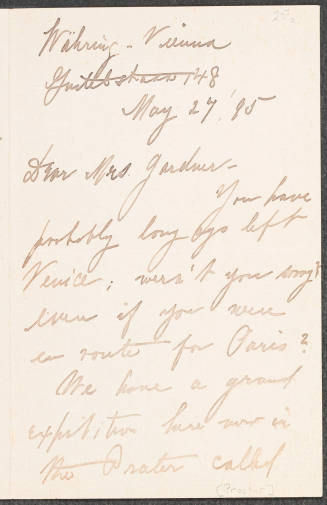 Währing - Vienna
148
May 27, '95
Dear Mrs. Gardner -
You have
probably long ago left
Venice; weren't you sorry?
even if you were
en route for Paris?
We have a grand
expitition here now in
the Prater called
[Proctor]